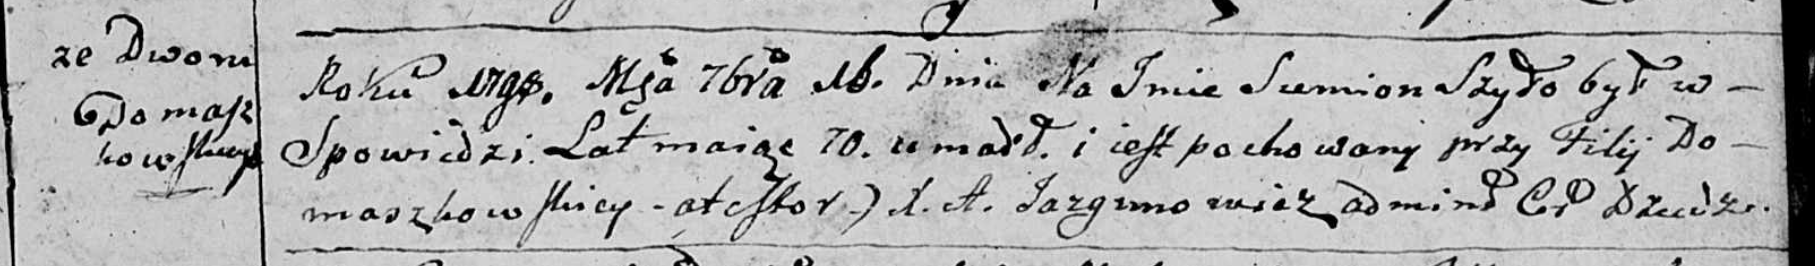 ze Dworu
Domasz
kowskiego
Roku 1798. Mca 7bra 16. Dnia Na Imie Siemion Szydło był w –
Spowiedzi. Lat maiąc 70. umarł. i iest pochowany przy Filij Do –
maszkowskiey - atestor) X. A. Jazgunowicz admin